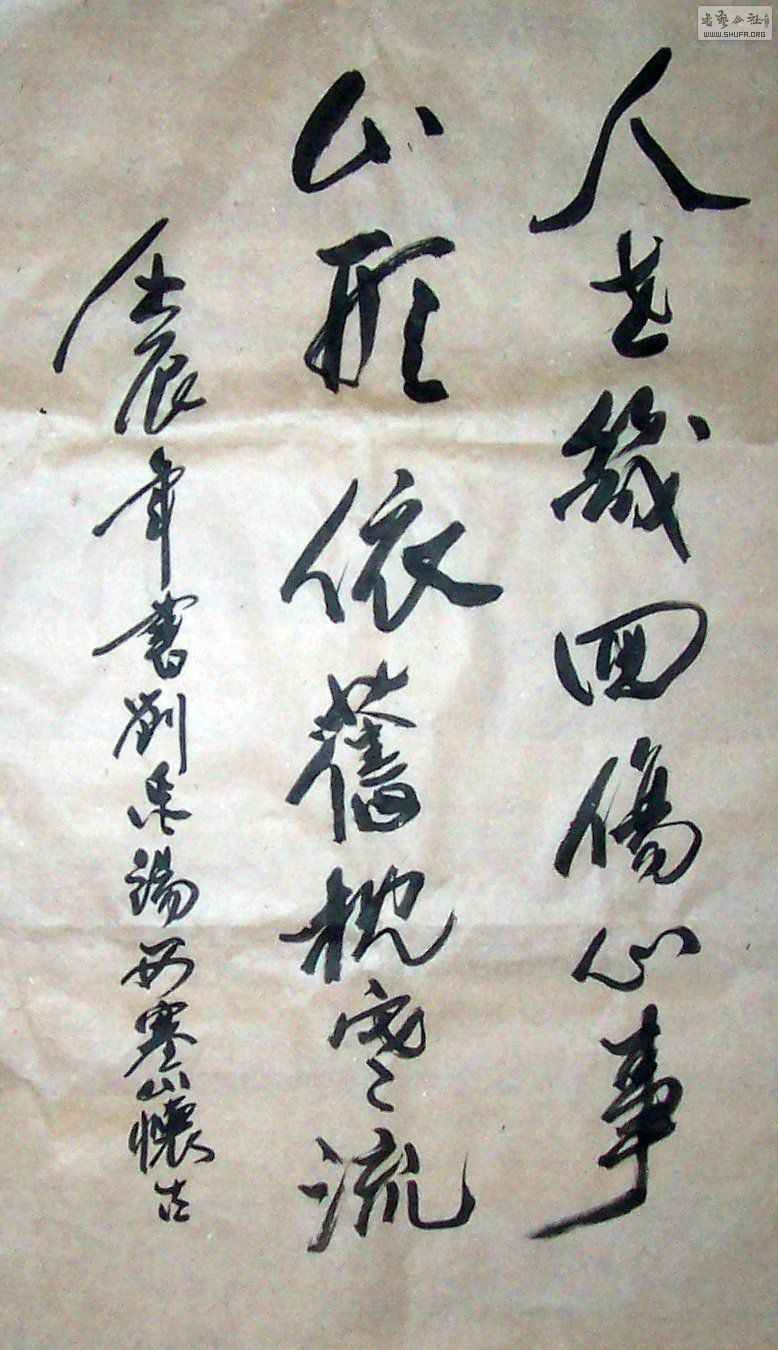 人世幾回傷心事
山形依舊枕寒流
壬辰年書劉禹錫西塞山懷古
書藝公社
WWW.SHUFA.ORG